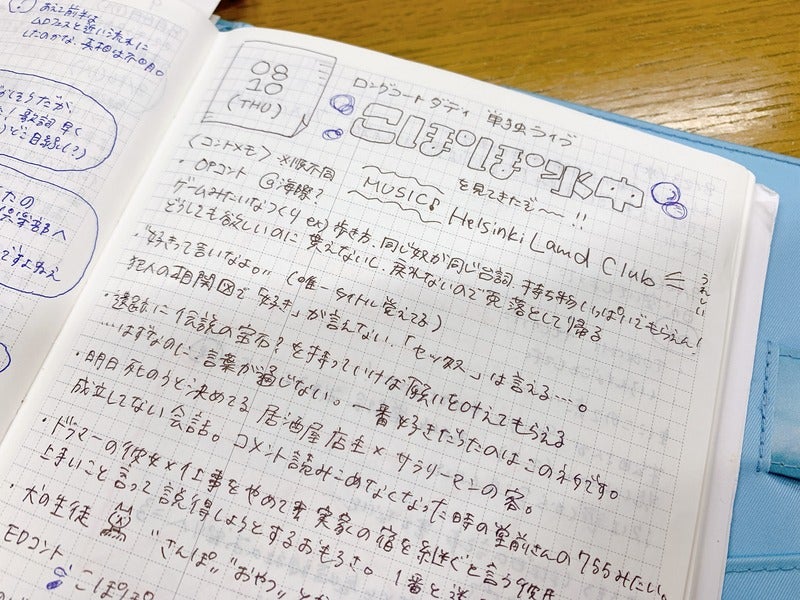 あえて前半は
したのかな、真相は不明。
歌詞 早く
どこ目線(?)
倶楽部へ
ですよねえ
08
10
(THU)
ロングコートダディ 単独ライブ
こぽぽぽ水中
を見てきたぞ〜〜!!
〈コントメモ〉 ※順不同
MUSIC♪ Helsinki Lamd Club ≤ うれしい
・OPコント @海際?
ゲームみたいなつくり ex) 歩き方、同じ奴が同じ台詞、持ち物いっぱいでもらえん!
どうしても欲しいのに貰えないし、戻れないので 落として帰る
・"好きって言いなよ。" (唯一タイトル覚えてる)
犯人の相関図で「好き」が言えない、「セックス」は言える…。
・遺跡に伝説の宝石?を持っていけば願いを叶えてもらえる
…はずなのに、言葉が通じない。一番好きだったのはこのネタです。
・明日死のうと決めてる居酒屋店主×サラリーマンの客。
成立してない会話。コメント読みこめなくなった時の堂前さんの755みたい。
・ドラマーの彼女×仕事をやめて実家の宿を継ぐと言う彼氏
上手いこと言って説得しようとするおもろさ。1番と
・犬の生徒 "さんぽ" "おやつ" とか
EDコント
こぽぽぽ